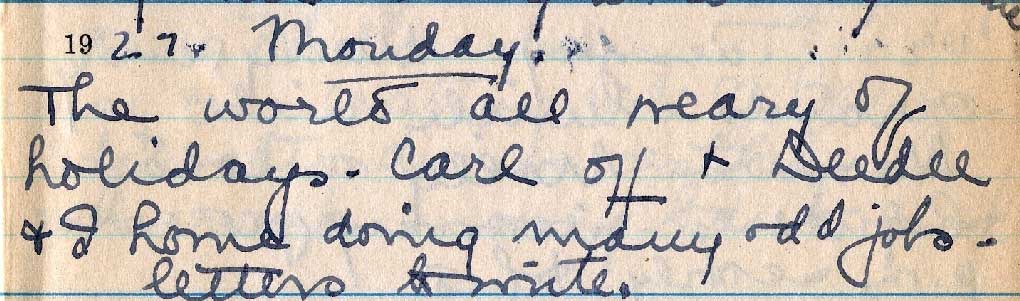 1927. Monday.
The world all weary of
holidays. Carl off + Deedee
+ I home doing many odd jobs -
letters to write.